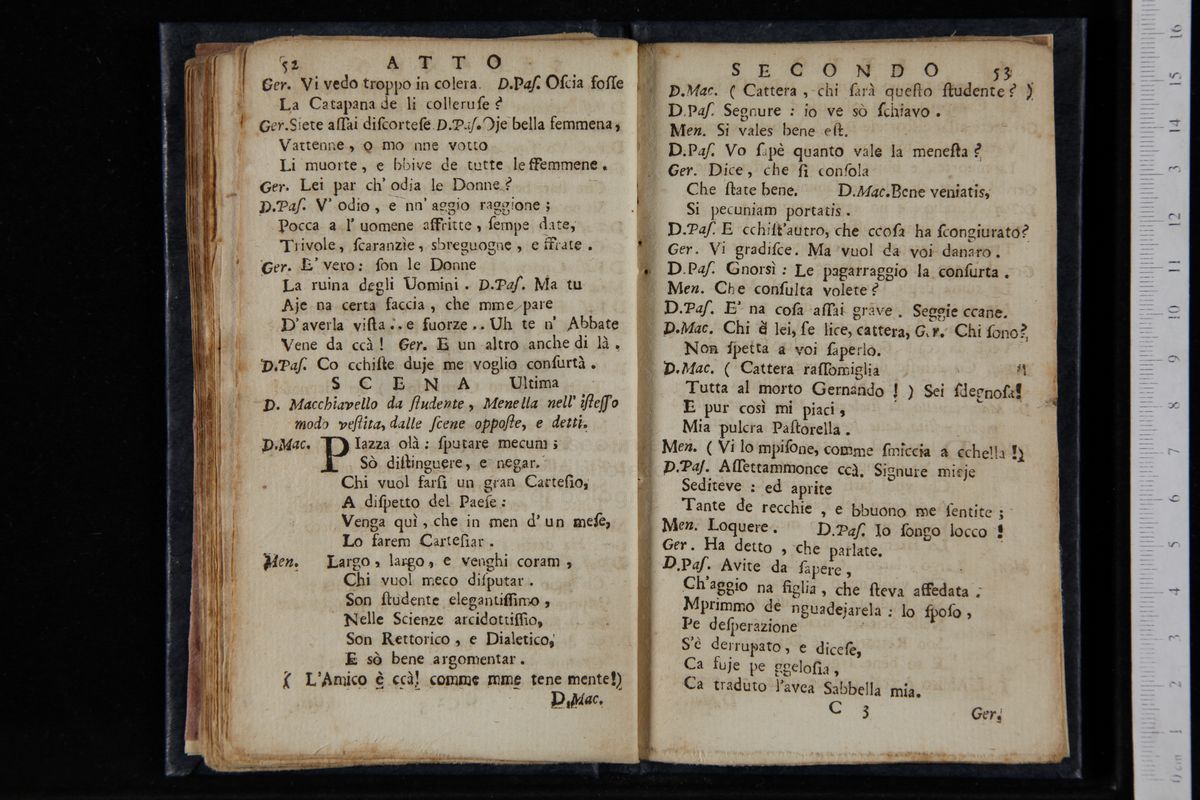 52 ATTO
Ger. Vi vedo troppo in colera. D.Paſ. Oſcia foſſe
La Catapana de li colleruſe ?
Ger. Siete aſſai diſcorteſe D.Paſ. Oje bella femmena,
Vattenne, o mo nne votto
Li muorte, e bbive de tutte le ffemmene.
Ger. Lei par ch' odia le Donne ?
D.Paſ. V' odio, e nn' aggio raggione ;
Pocca a l' uomene affritte, ſempe date,
Trivole, ſcaranzie, sbreguogne, e ffrate.
Ger. E' vero : ſon le Donne
La ruina degli Uomini. D.Paſ. Ma tu
Aje na certa faccia, che mme pare
D'averla viſta .. e fuorze .. Uh te n' Abbate
Vene da ccà ! Ger. E un altro anche di là.
D.Paſ. Co cchiſte duje me voglio conſurtà.
SCENA Ultima
D. Macchiavello da ſtudente, Menella nell' iſteſſo
modo veſtita, dalle ſcene oppoſte, e detti.
D.Mac. PIazza olà : ſputare mecum ;
Sò diſtinguere, e negar.
Chi vuol farſi un gran Carteſio,
A diſpetto del Paeſe :
Venga quì, che in men d' un meſe,
Lo farem Carteſiar.
Men. Largo, largo, e venghi coram,
Chi vuol meco diſputar.
Son ſtudente elegantiſſimo,
Nelle Scienze arcidottiſſio,
Son Rettorico, e Dialetico,
E sò bene argomentar.
( L'Amico è ccà! comme mme tene mente!)
D.Mac.
SECONDO 53
D.Mac. ( Cattera, chi ſarà queſto ſtudente ? )
D.Paſ. Segnure : io ve sò ſchiavo.
Men. Si vales bene eſt.
D.Paſ. Vo ſapè quanto vale la meneſta ?
Ger. Dice, che ſi conſola
Che ſtate bene. D.Mac. Bene veniatis,
Si pecuniam portatis.
D.Paſ. E cchiſt'autro, che ccoſa ha ſcongiurato?
Ger. Vi gradiſce. Ma vuol da voi danaro.
D.Paſ. Gnorsì : Le pagarraggio la conſurta.
Men. Che conſulta volete ?
D.Paſ. E' na coſa aſſai grave. Seggie ccane.
D.Mac. Chi è lei, ſe lice, cattera, Ger. Chi ſono?
Non ſpetta a voi ſaperlo.
D.Mac. ( Cattera raſſomiglia
Tutta al morto Gernando ! ) Sei ſdegnoſa!
E pur così mi piaci,
Mia pulcra Paſtorella.
Men. ( Vi lo mpiſone, comme ſmiccia a cchella !)
D.Paſ. Aſſettammonce ccà. Signure mieje
Sediteve : ed aprite
Tante de recchie, e bbuono me ſentite ;
Men. Loquere. D.Paſ. Io ſongo locco !
Ger. Ha detto, che parlate.
D.Paſ. Avite da ſapere,
Ch'aggio na figlia, che ſteva affedata.
Mprimmo de nguadejarela : lo ſpoſo,
Pe deſperazione
S'è derrupato, e diceſe,
Ca fuje pe ggeloſia,
Ca traduto l'avea Sabbella mia.
C 3 Ger.